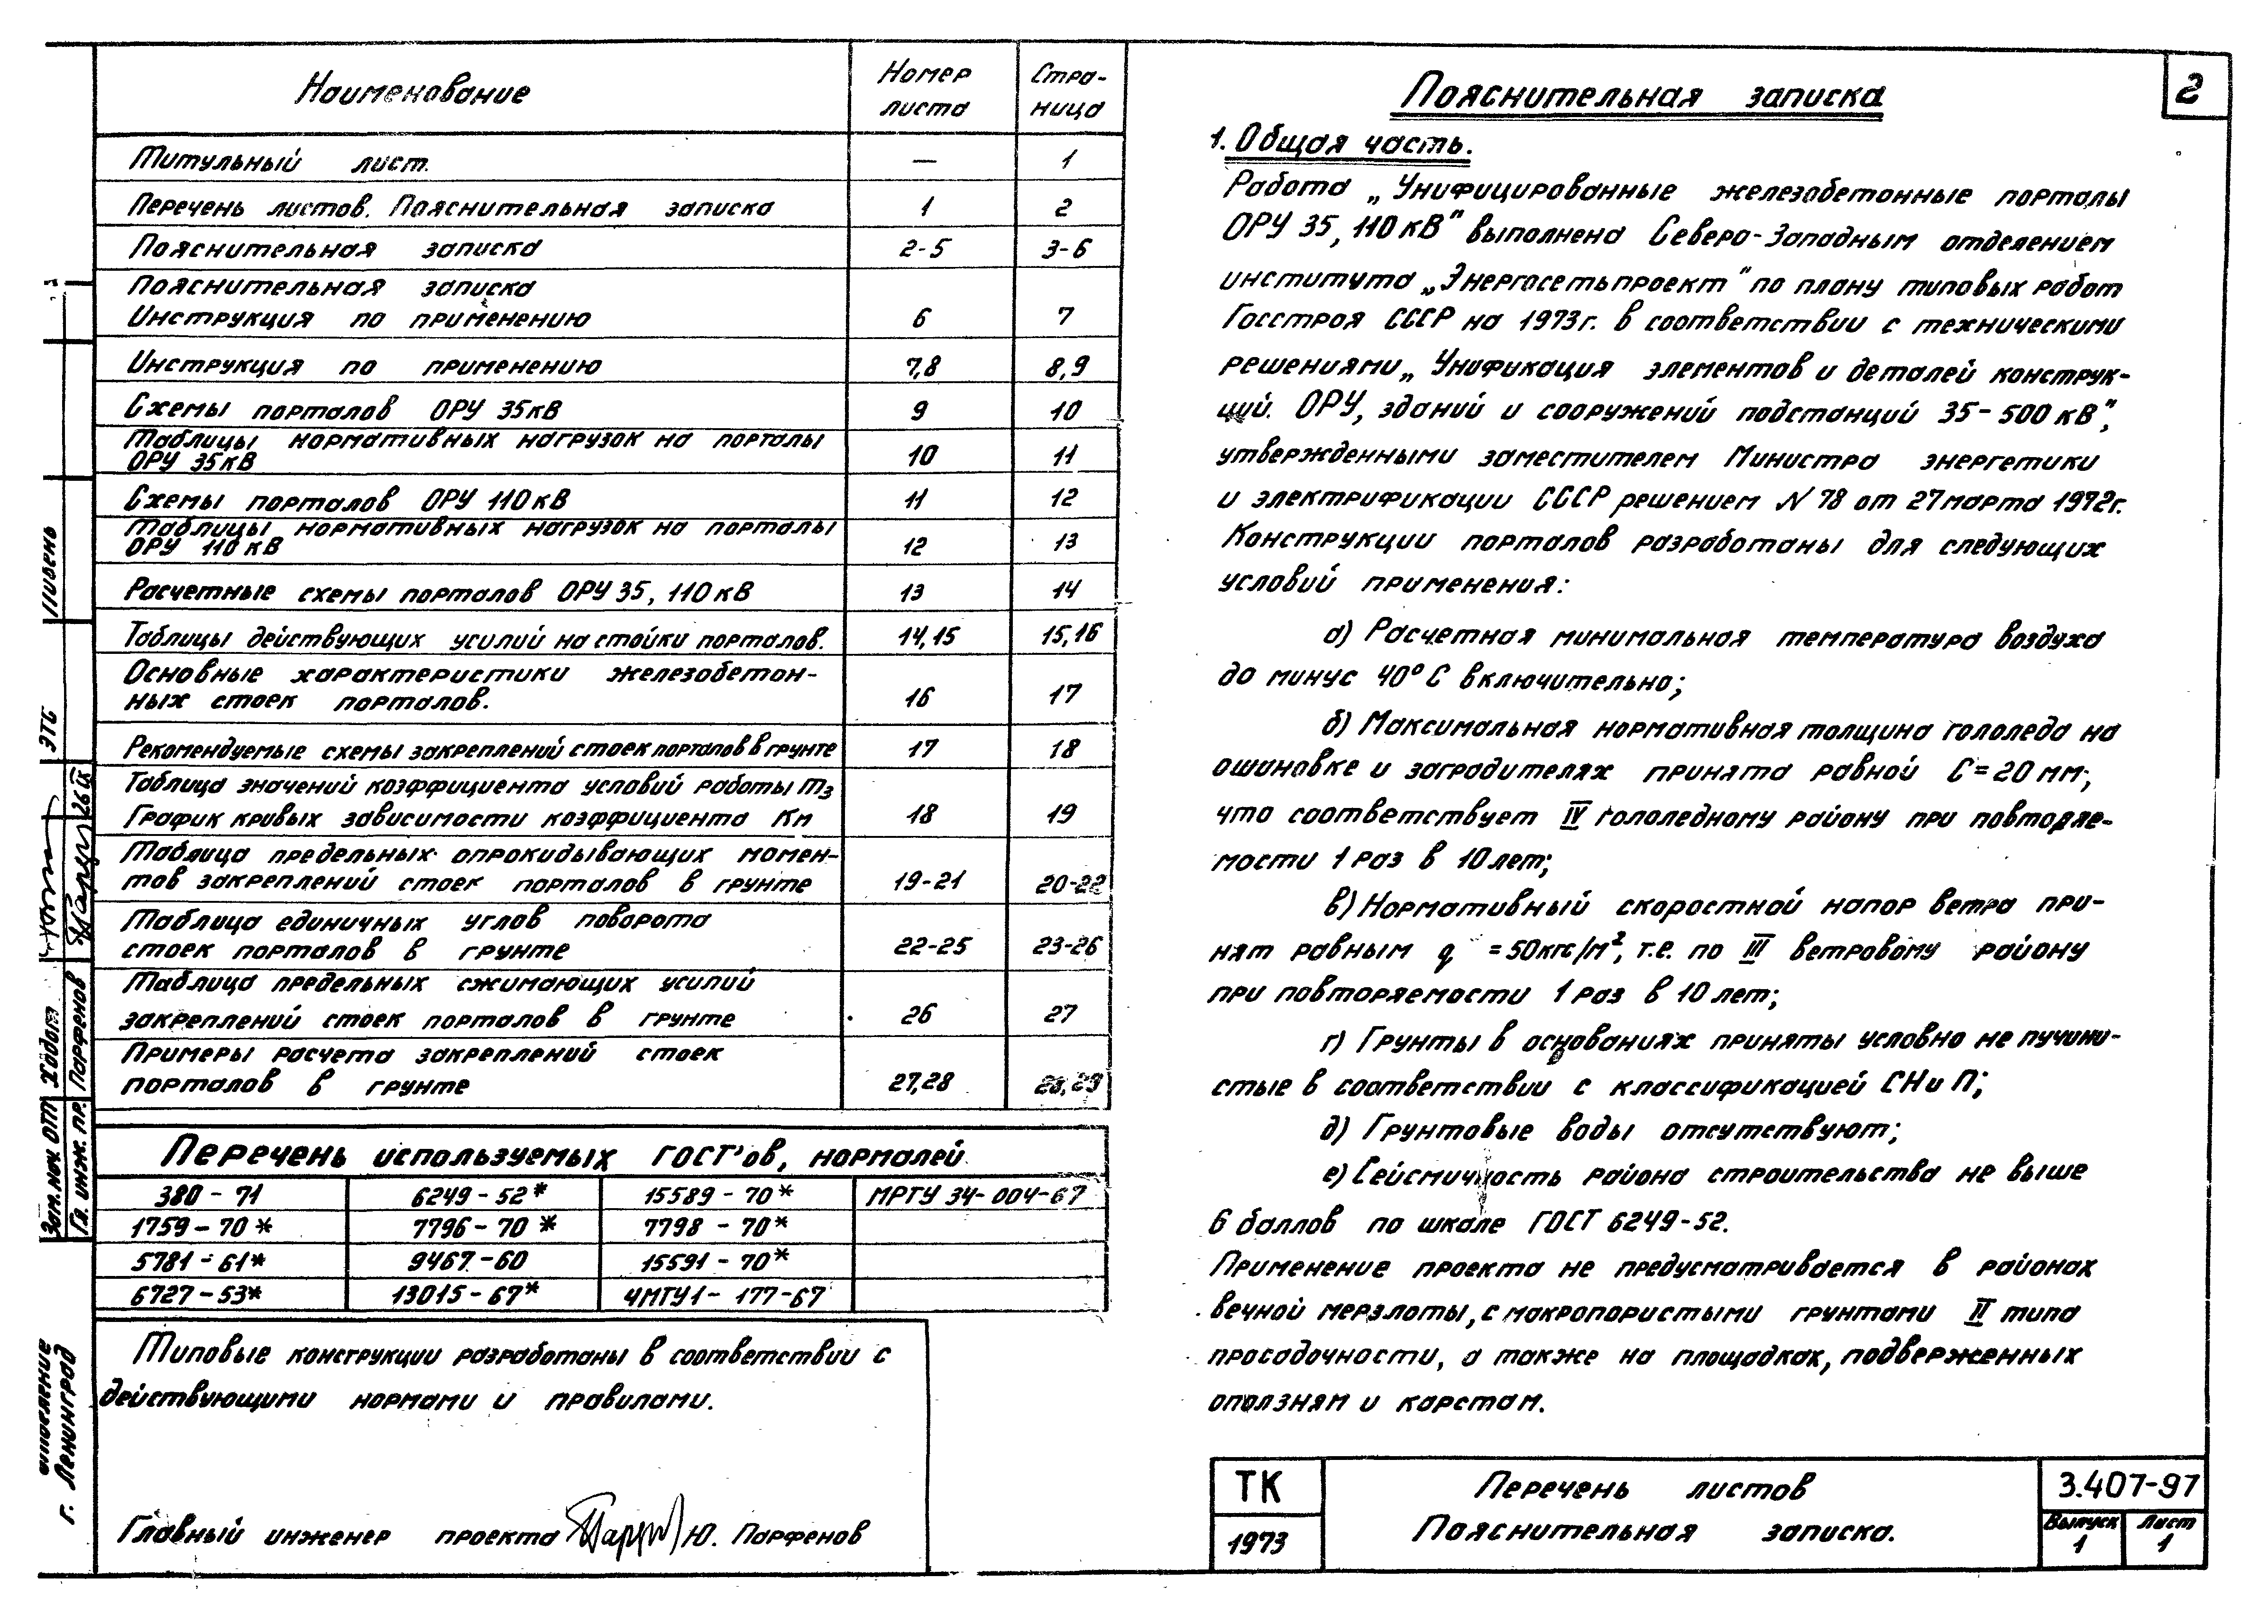 Наименование
Номер листа
Стра-ница
Титульный лист. — 1
Перечень листов. Пояснительная записка 1 2
Пояснительная записка 2-5 3-6
Пояснительная записка
Инструкция по применению 6 7
Инструкция по применению 7,8 8,9
Схемы порталов ОРУ 35кВ 9 10
Таблицы нормативных нагрузок на порталы
ОРУ 35кВ 10 11
Схемы порталов ОРУ 110кВ 11 12
Таблицы нормативных нагрузок на порталы
ОРУ 110кВ 12 13
Расчетные схемы порталов ОРУ 35, 110кВ 13 14
Таблицы действующих усилий на стойки порталов. 14,15 15,16
Основные характеристики железобетон-
ных стоек порталов. 16 17
Рекомендуемые схемы закреплений стоек порталов в грунте 17 18
Таблица значений коэффициента условий работы m₃
График кривых зависимости коэффициента Кн 18 19
Таблица предельных опрокидывающих момен-
тов закреплений стоек порталов в грунте 19-21 20-22
Таблица единичных углов поворота
стоек порталов в грунте 22-25 23-26
Таблица предельных сжимающих усилий
закреплений стоек порталов в грунте 26 27
Примеры расчета закреплений стоек
порталов в грунте 27,28 28,29
Перечень используемых ГОСТ'ов, нормалей
380-71 6249-52* 15589-70* МРТУ 34-004-67
1759-70* 7796-70* 7798-70*
5781-61* 9467-60 15591-70*
6727-53* 13015-67* ЧМТУ1-177-67
Типовые конструкции разработаны в соответствии с
действующими нормами и правилами.
Главный инженер проекта Ю. Парфенов
ЭТС
Зам. нач. ОТП Ходот
Гл. инж. пр. Парфенов
26 IX
отделение
г. Ленинград
2
Пояснительная записка
1. Общая часть.
Работа „Унифицированные железобетонные порталы
ОРУ 35, 110кВ" выполнена Северо-Западным отделением
института „Энергосетьпроект" по плану типовых работ
Госстроя СССР на 1973г. в соответствии с техническими
решениями „Унификация элементов и деталей конструк-
ций. ОРУ, зданий и сооружений подстанций 35-500кВ",
утвержденными заместителем Министра энергетики
и электрификации СССР решением N 78 от 27 марта 1972г.
Конструкции порталов разработаны для следующих
условий применения:
а) Расчетная минимальная температура воздуха
до минус 40°С включительно;
б) Максимальная нормативная толщина гололеда на
ошиновке и заградителях принята равной С=20мм,
что соответствует IV гололедному району при повторяе-
мости 1 раз в 10 лет;
в) Нормативный скоростной напор ветра при-
нят равным q = 50кгс/м², т.е. по III ветровому району
при повторяемости 1 раз в 10 лет;
г) Грунты в основаниях приняты условно не пучини-
стые в соответствии с классификацией СНиП;
д) Грунтовые воды отсутствуют;
е) Сейсмичность района строительства не выше
6 баллов по шкале ГОСТ 6249-52.
Применение проекта не предусматривается в районах
вечной мерзлоты, с макропористыми грунтами II типа
просадочности, а также на площадках, подверженных
оползням и карстам.
ТК
1973
Перечень листов
Пояснительная записка.
3.407-97
Выпуск 1
Лист 1